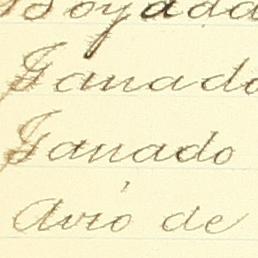 Boyada
Ganado
Ganado
Avió de